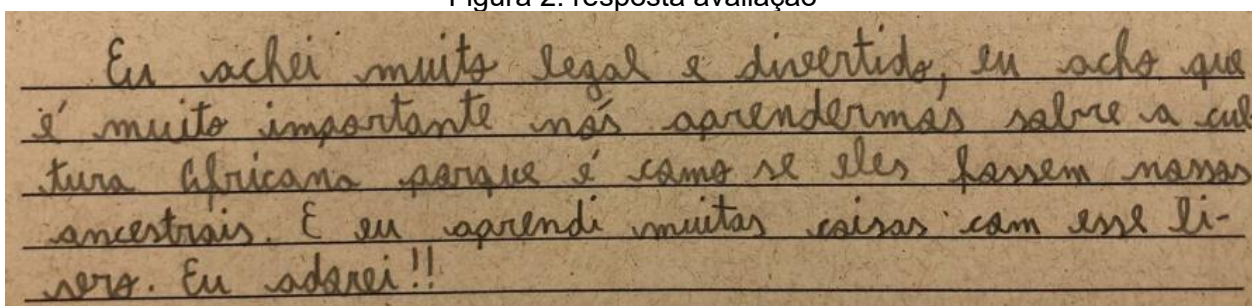 Figura 2: resposta avaliação
Eu achei muito legal e divertido, eu acho que
é muito importante nós aprendermos sobre a cul
tura Africana porque é como se eles fossem nossos
ancestrais. E eu aprendi muitas coisas com esse li-
vro. Eu adorei!!